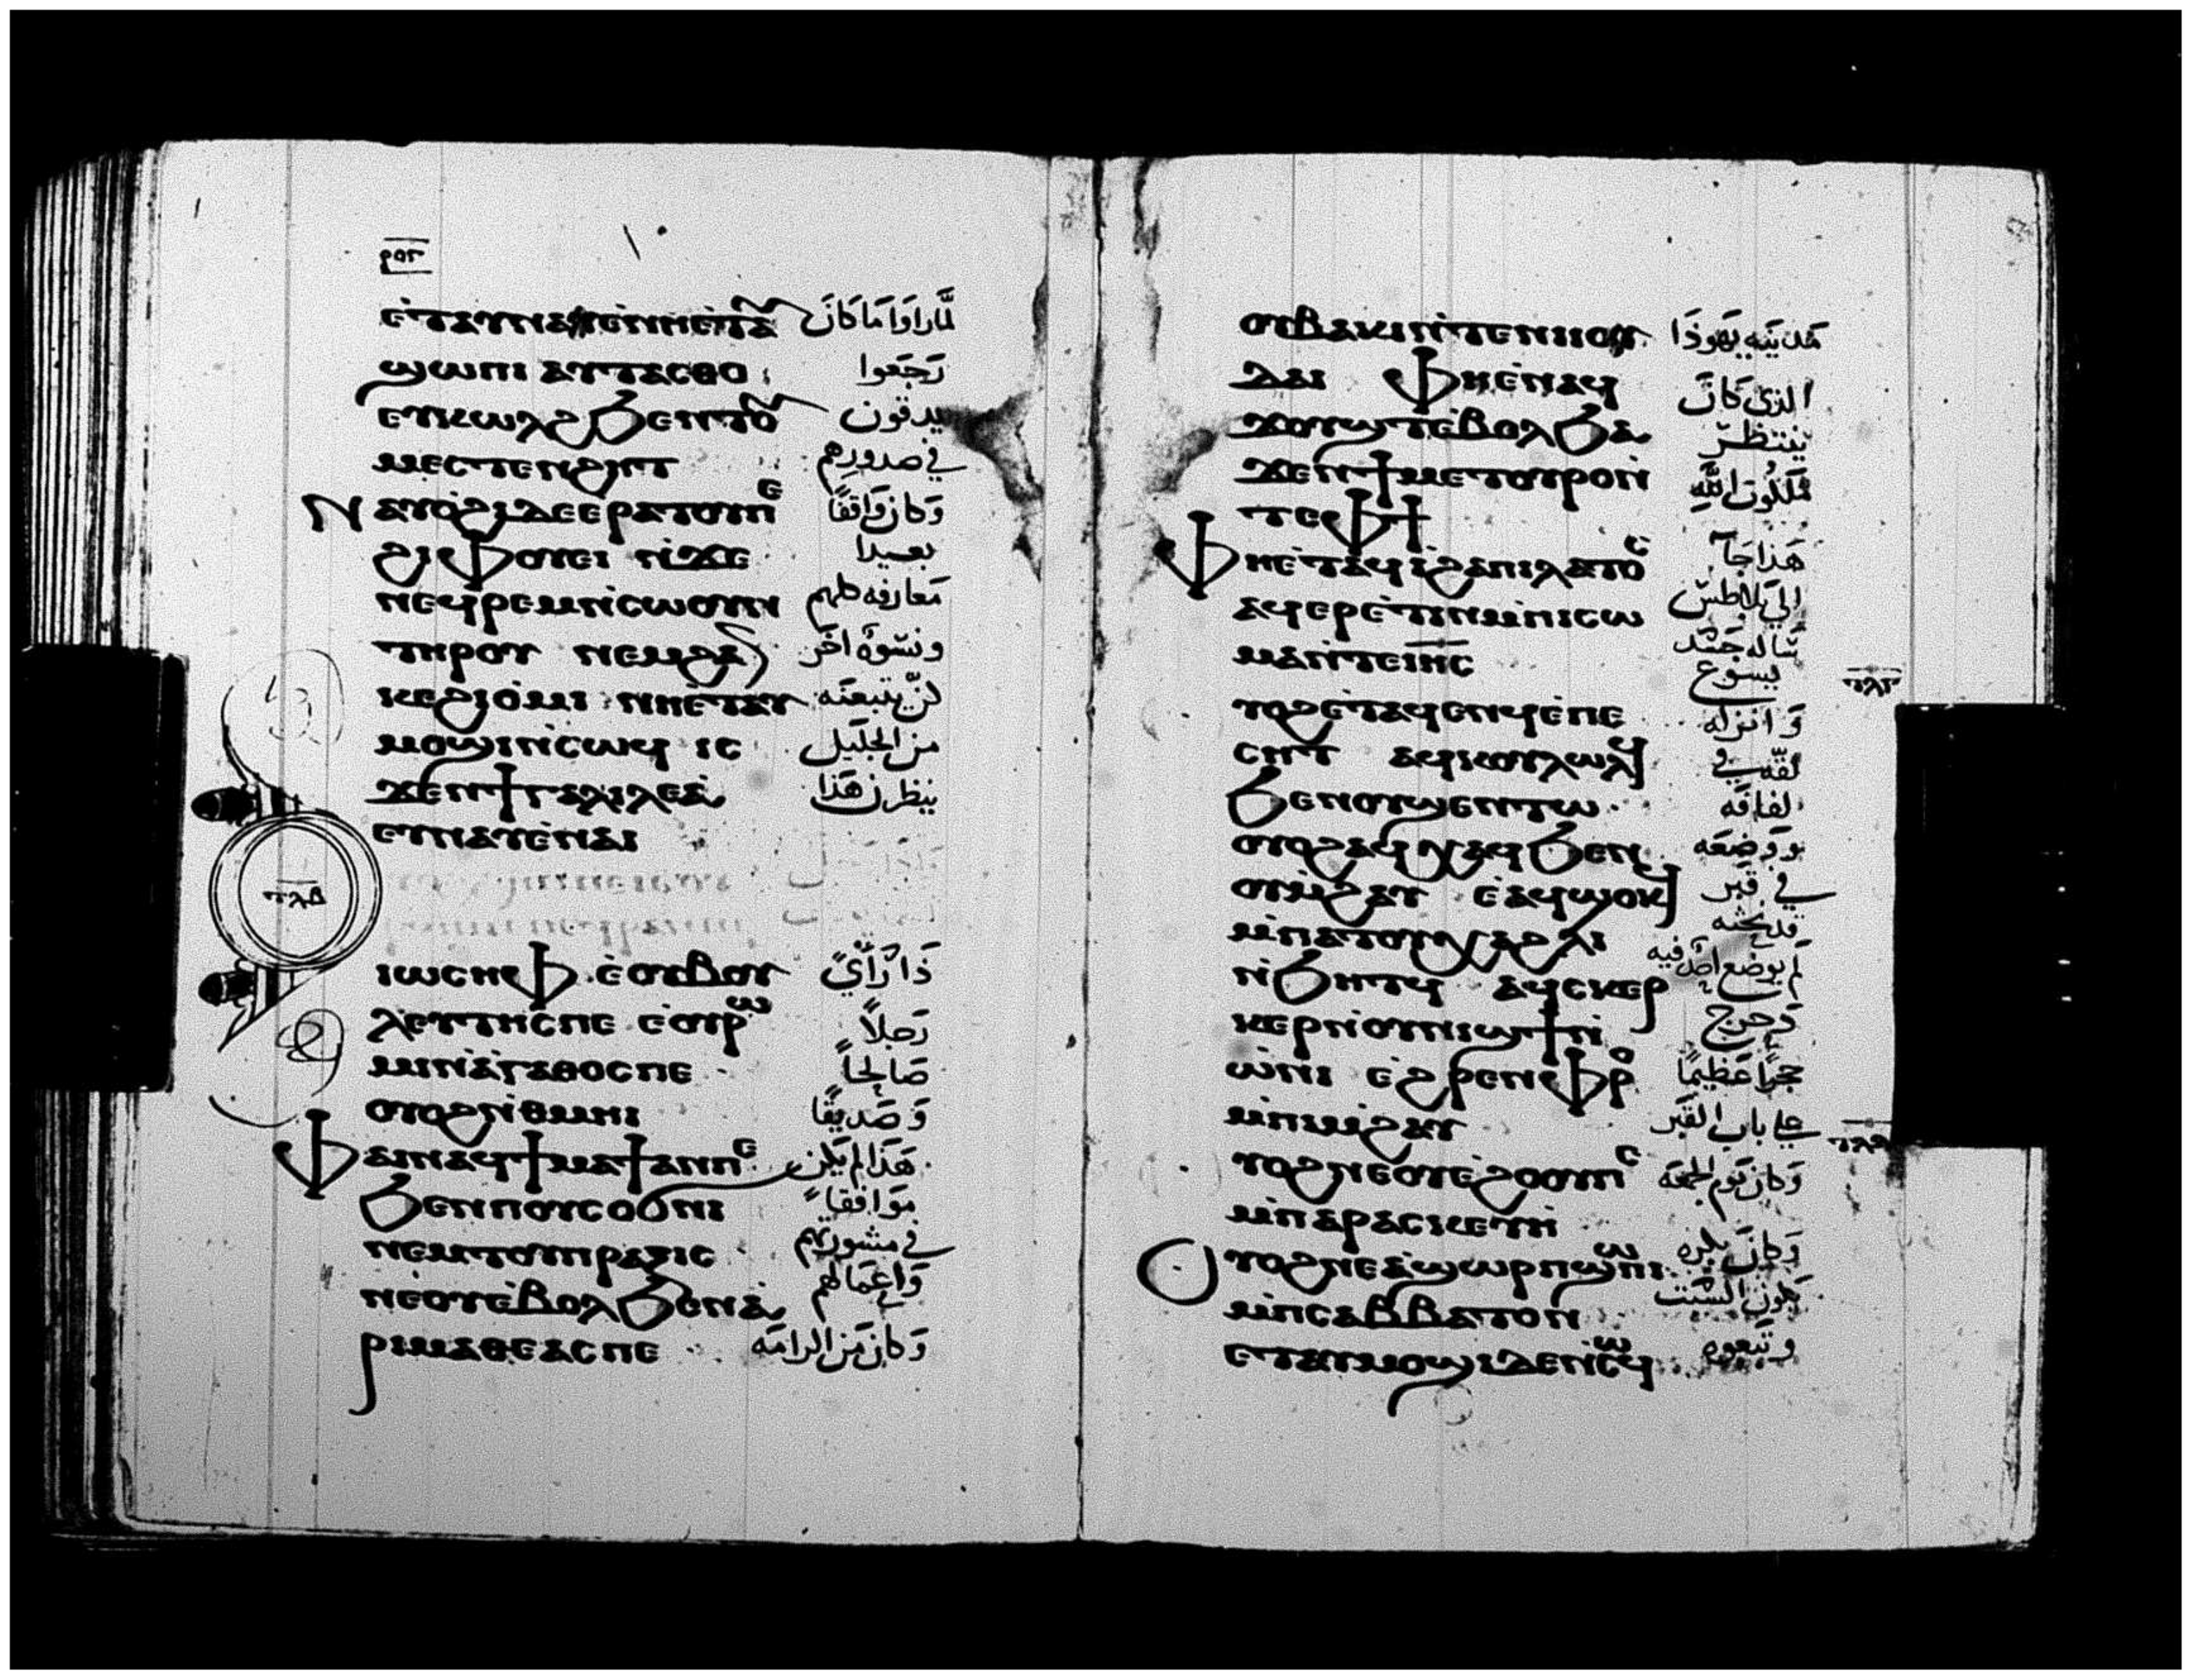 ⲉⲧⲁⲩⲛⲁⲩ ⲉⲛⲏⲉⲧⲁ لما راوا ما كان
ϣⲱⲡⲓ ⲁⲩⲧⲁⲥⲑⲟ رجعوا
ⲉⲩⲕⲱⲗϩ ϧⲉⲛⲧⲟ يدقون
ⲙⲉⲥⲧⲉⲛϩⲏⲧ في صدورهم
ⲛⲁⲩⲟϩⲓ ⲇⲉ ⲉⲣⲁⲧⲟⲩⲡⲉ وكان واقفًا
ϩⲓⲫⲟⲩⲉⲓ ⲛϫⲉ بعيدا
ⲛⲉϥⲣⲉⲙⲛⲥⲱⲟⲩⲛ معارفه كلهم
ⲧⲏⲣⲟⲩ ⲛⲉⲙϩⲁⲛ ونسوة اخر
ⲕⲉϩⲓⲟⲙⲓ ⲛⲏⲉⲧⲁⲩ كن يتبعنه
ⲙⲟϣⲓ ⲛⲥⲱϥ ⲓⲥ من الجليل
ϫⲉⲛϯⲅⲁⲗⲓⲗⲉⲁ ينظرن هذا
ⲉⲩⲛⲁⲩ ⲉⲛⲁⲓ
ⲧⲗⲃ
ⲓⲱⲥⲏⲫ ⲉⲟⲩⲃⲟⲩ ذا راي
ⲗⲉⲩⲧⲏⲥⲡⲉ ⲉⲟⲩⲣⲱ رجلاً
ⲙⲓ ⲛⲁⲅⲁⲑⲟⲥⲡⲉ صالحاً
ⲟⲩⲟϩ ⲛⲑⲙⲏⲓ وصديقًا
ⲫⲁⲓ ⲛⲁϥϯⲙⲁϯ ⲁⲛⲡⲉ هذا لم يكن
ϧⲉⲛⲡⲟⲩⲥⲟϭⲛⲓ موافقاً
ⲛⲉⲙⲧⲟⲩⲡⲣⲁⲝⲓⲥ في مشورتهم
ⲛⲉⲟⲩⲉⲃⲟⲗ ϧⲉⲛⲁ واعمالهم
ⲣⲓⲙⲁⲑⲉⲁⲥⲡⲉ وكان من الرامه
ⲟⲩⲃⲁⲕⲓ ⲛⲧⲉⲛⲓⲟⲩ مدينه يهوذا
ⲇⲁⲓ ⲫⲏⲉⲛⲁϥ الذي كان
ϫⲟⲩϣⲧ ⲉⲃⲟⲗ ϧⲁ ينتظر
ϫⲉⲛϯⲙⲉⲧⲟⲩⲣⲟ ⲛ ملكوت الله
ⲧⲉⲫϯ
ⲫⲏⲉⲧⲁϥⲓ ϩⲁⲡⲓⲗⲁⲧⲟⲥ هذا جآ
ⲁϥⲉⲣⲉⲧⲓⲛ ⲙⲡⲓⲥⲱ الى بيلاطس
ⲙⲁ ⲛⲧⲉⲓⲏⲥ ساله جسد يسوع
ⲧⲗⲅ
ⲩⲟϩ ⲉⲧⲁϥⲉⲛϥ ⲉⲡⲉ وانزله
ⲥⲏⲧ ⲁϥⲕⲟⲩⲗⲱⲗϥ لفه في
ϧⲉⲛⲟⲩϣⲉⲛⲧⲱ لفافه
ⲟⲩⲟϩ ⲁϥⲭⲁϥ ϧⲉⲛ ووضعه
ⲟⲩⲙϩⲁⲩ ⲉⲁϥϣⲟⲕϥ في قبر
ⲙⲡⲁⲧⲟⲩⲭⲁ ϩⲗⲓ قد نحته
ⲛϧⲏⲧϥ ⲁϥⲥⲕⲉⲣ لم يوضع احد فيه
ⲕⲉⲣ ⲛⲟⲩⲛⲓϣϯ ⲛ ودحرج
ⲱⲛⲓ ⲉϩⲣⲉⲛ ⲫⲣⲟ حجرًا عظيمًا
ⲙⲡⲓⲙϩⲁⲩ على باب القبر
ⲧⲗⲇ
ⲩⲟϩ ⲛⲉⲟⲩⲉϩⲟⲟⲩⲡⲉ وكان يوم الجمعه
ⲙⲡⲁⲣⲁⲥⲕⲉⲩⲏ
ⲟⲩⲟϩ ⲛⲉⲁϣⲱⲣⲡ ϣⲱⲡⲓ وكان بكره
ⲙⲡⲥⲁⲃⲃⲁⲧⲟⲛ يكون السبت
ⲉⲧⲁⲩⲙⲟϣⲓ ⲇⲉ ⲛⲥⲱϥ وتبعوه